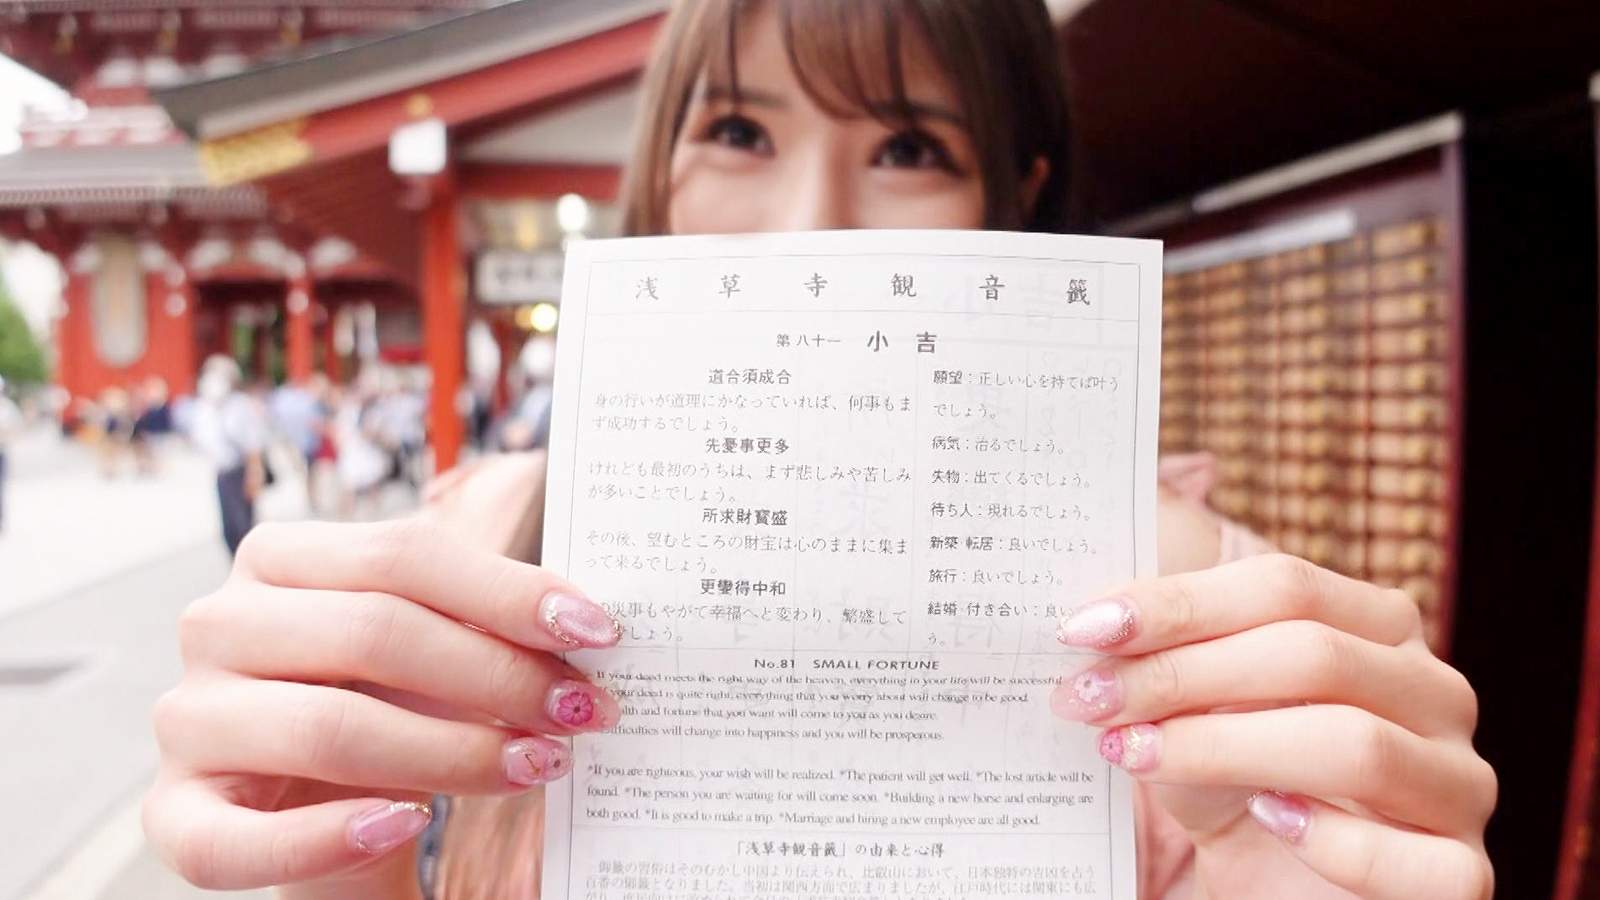 浅草寺観音籤
第八十一 小吉
道合須成合
身の行いが道理にかなっていれば、何事もま
ず成功するでしょう。
先憂事更多
けれども最初のうちは、まず悲しみや苦しみ
が多いことでしょう。
所求財寳盛
その後、望むところの財宝は心のままに集ま
って来るでしょう。
更變得中和
災事もやがて幸福へと変わり、繁盛して
しょう。
願望:正しい心を持てば叶う
でしょう。
病気:治るでしょう。
失物:出てくるでしょう。
待ち人:現れるでしょう。
新築・転居:良いでしょう。
旅行:良いでしょう。
結婚・付き合い:良い
う。
No.81 SMALL FORTUNE
If your deed meets the right way of the heaven, everything in your life will be successful.
your deed is quite right, everything that you worry about will change to be good.
and fortune that you want will come to you as you desire.
Difficulties will change into happiness and you will be prosperous.
*If you are righteous, your wish will be realized. *The patient will get well. *The lost article will be
found. *The person you are waiting for will come soon. *Building a new horse and enlarging are
both good. *It is good to make a trip. *Marriage and hiring a new employee are all good.
「浅草寺観音籤」の由来と心得
御籤の習俗はそのむかし中国より伝えられ、比叡山において、日本独特の吉凶を占う
百番の御籤となりました。当初は関西方面で広まりましたが、江戸時代には関東にも広